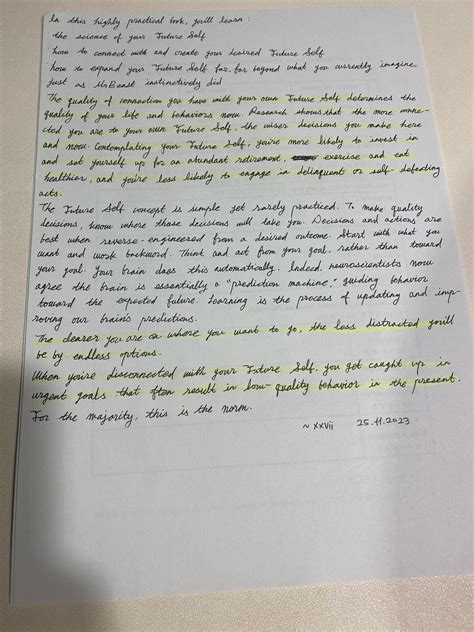 In this highly practical book, you'll learn:
the science of your Future Self
how to connect with and create your desired Future Self
how to expand your Future Self far, far beyond what you currently imagine,
just as MrBeast instinctively did
The quality of connection you have with your own Future Self determines the
quality of your life and behaviors now. Research shows that the more conne-
cted you are to your own Future Self, the wiser decisions you make here
and now. Contemplating your Future Self, you're more likely to invest in
and set yourself up for an abundant retirement, exercise and eat
healthier, and you're less likely to engage in delinquent or self-defeating
acts.
The Future Self concept is simple yet rarely practiced. To make quality
decisions, know where those decisions will take you. Decisions and actions are
best when reverse-engineered from a desired outcome. Start with what you
want and work backward. Think and act from your goal, rather than toward
your goal. Your brain does this automatically. Indeed, neuroscientists now
agree the brain is essentially a "prediction machine", guiding behavior
toward the expected future. Learning is the process of updating and imp-
roving our brain's predictions.
The clearer you are on where you want to go, the less distracted you'll
be by endless options.
When you're disconnected with your Future Self, you get caught up in
urgent goals that often result in low-quality behavior in the present.
For the majority, this is the norm.
~ xxvii 25.11.2023